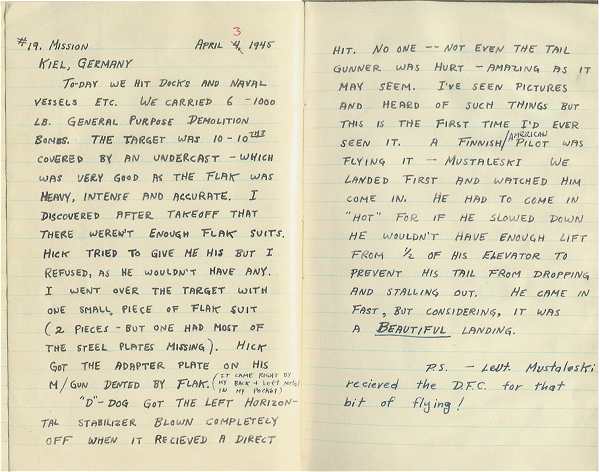 #19. Mission April 4, 3 1945
Kiel, Germany
To-day we hit docks and naval
vessels etc. We carried 6-1000
lb. General Purpose Demolition
Bombs. The target was 10-10ths
covered by an undercast - which
was very good as the flak was
heavy, intense and accurate. I
discovered after takeoff that
there weren't enough flak suits.
Hick tried to give me his but I
refused, as he wouldn't have any.
I went over the target with
one small piece of flak suit
(2 pieces - but one had most of
the steel plates missing). Hick
got the adapter plate on his
M/Gun dented by flak. (It came right by
my back + left
in my pocket)
"D"-Dog got the left horizon-
tal stabilizer blown completely
off when it recieved a direct
hit. No one -- not even the tail
gunner was hurt - amazing as it
may seem. I've seen pictures
and heard of such things but
this is the first time I'd ever
seen it. A Finnish/American pilot was
flying it - Mustaleski We
landed first and watched him
come in. He had to come in
"hot" for if he slowed down
he wouldn't have enough lift
from 1/2 of his elevator to
prevent his tail from dropping
and stalling out. He came in
fast, but considering, it was
a Beautiful landing.
P.S. - Leut. Mustaleski
recieved the D.F.C. for that
bit of flying!